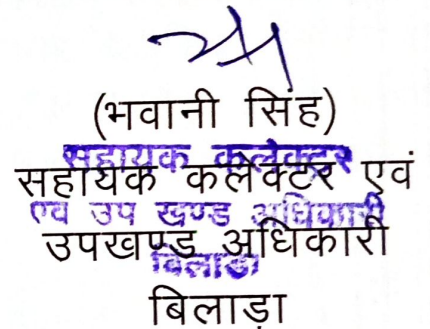 (भवानी सिंह)
सहायक कलेक्टर
सहायक कलेक्टर एवं
एवं उप खण्ड अधिकारी
उपखण्ड अधिकारी
बिलाडा
बिलाड़ा